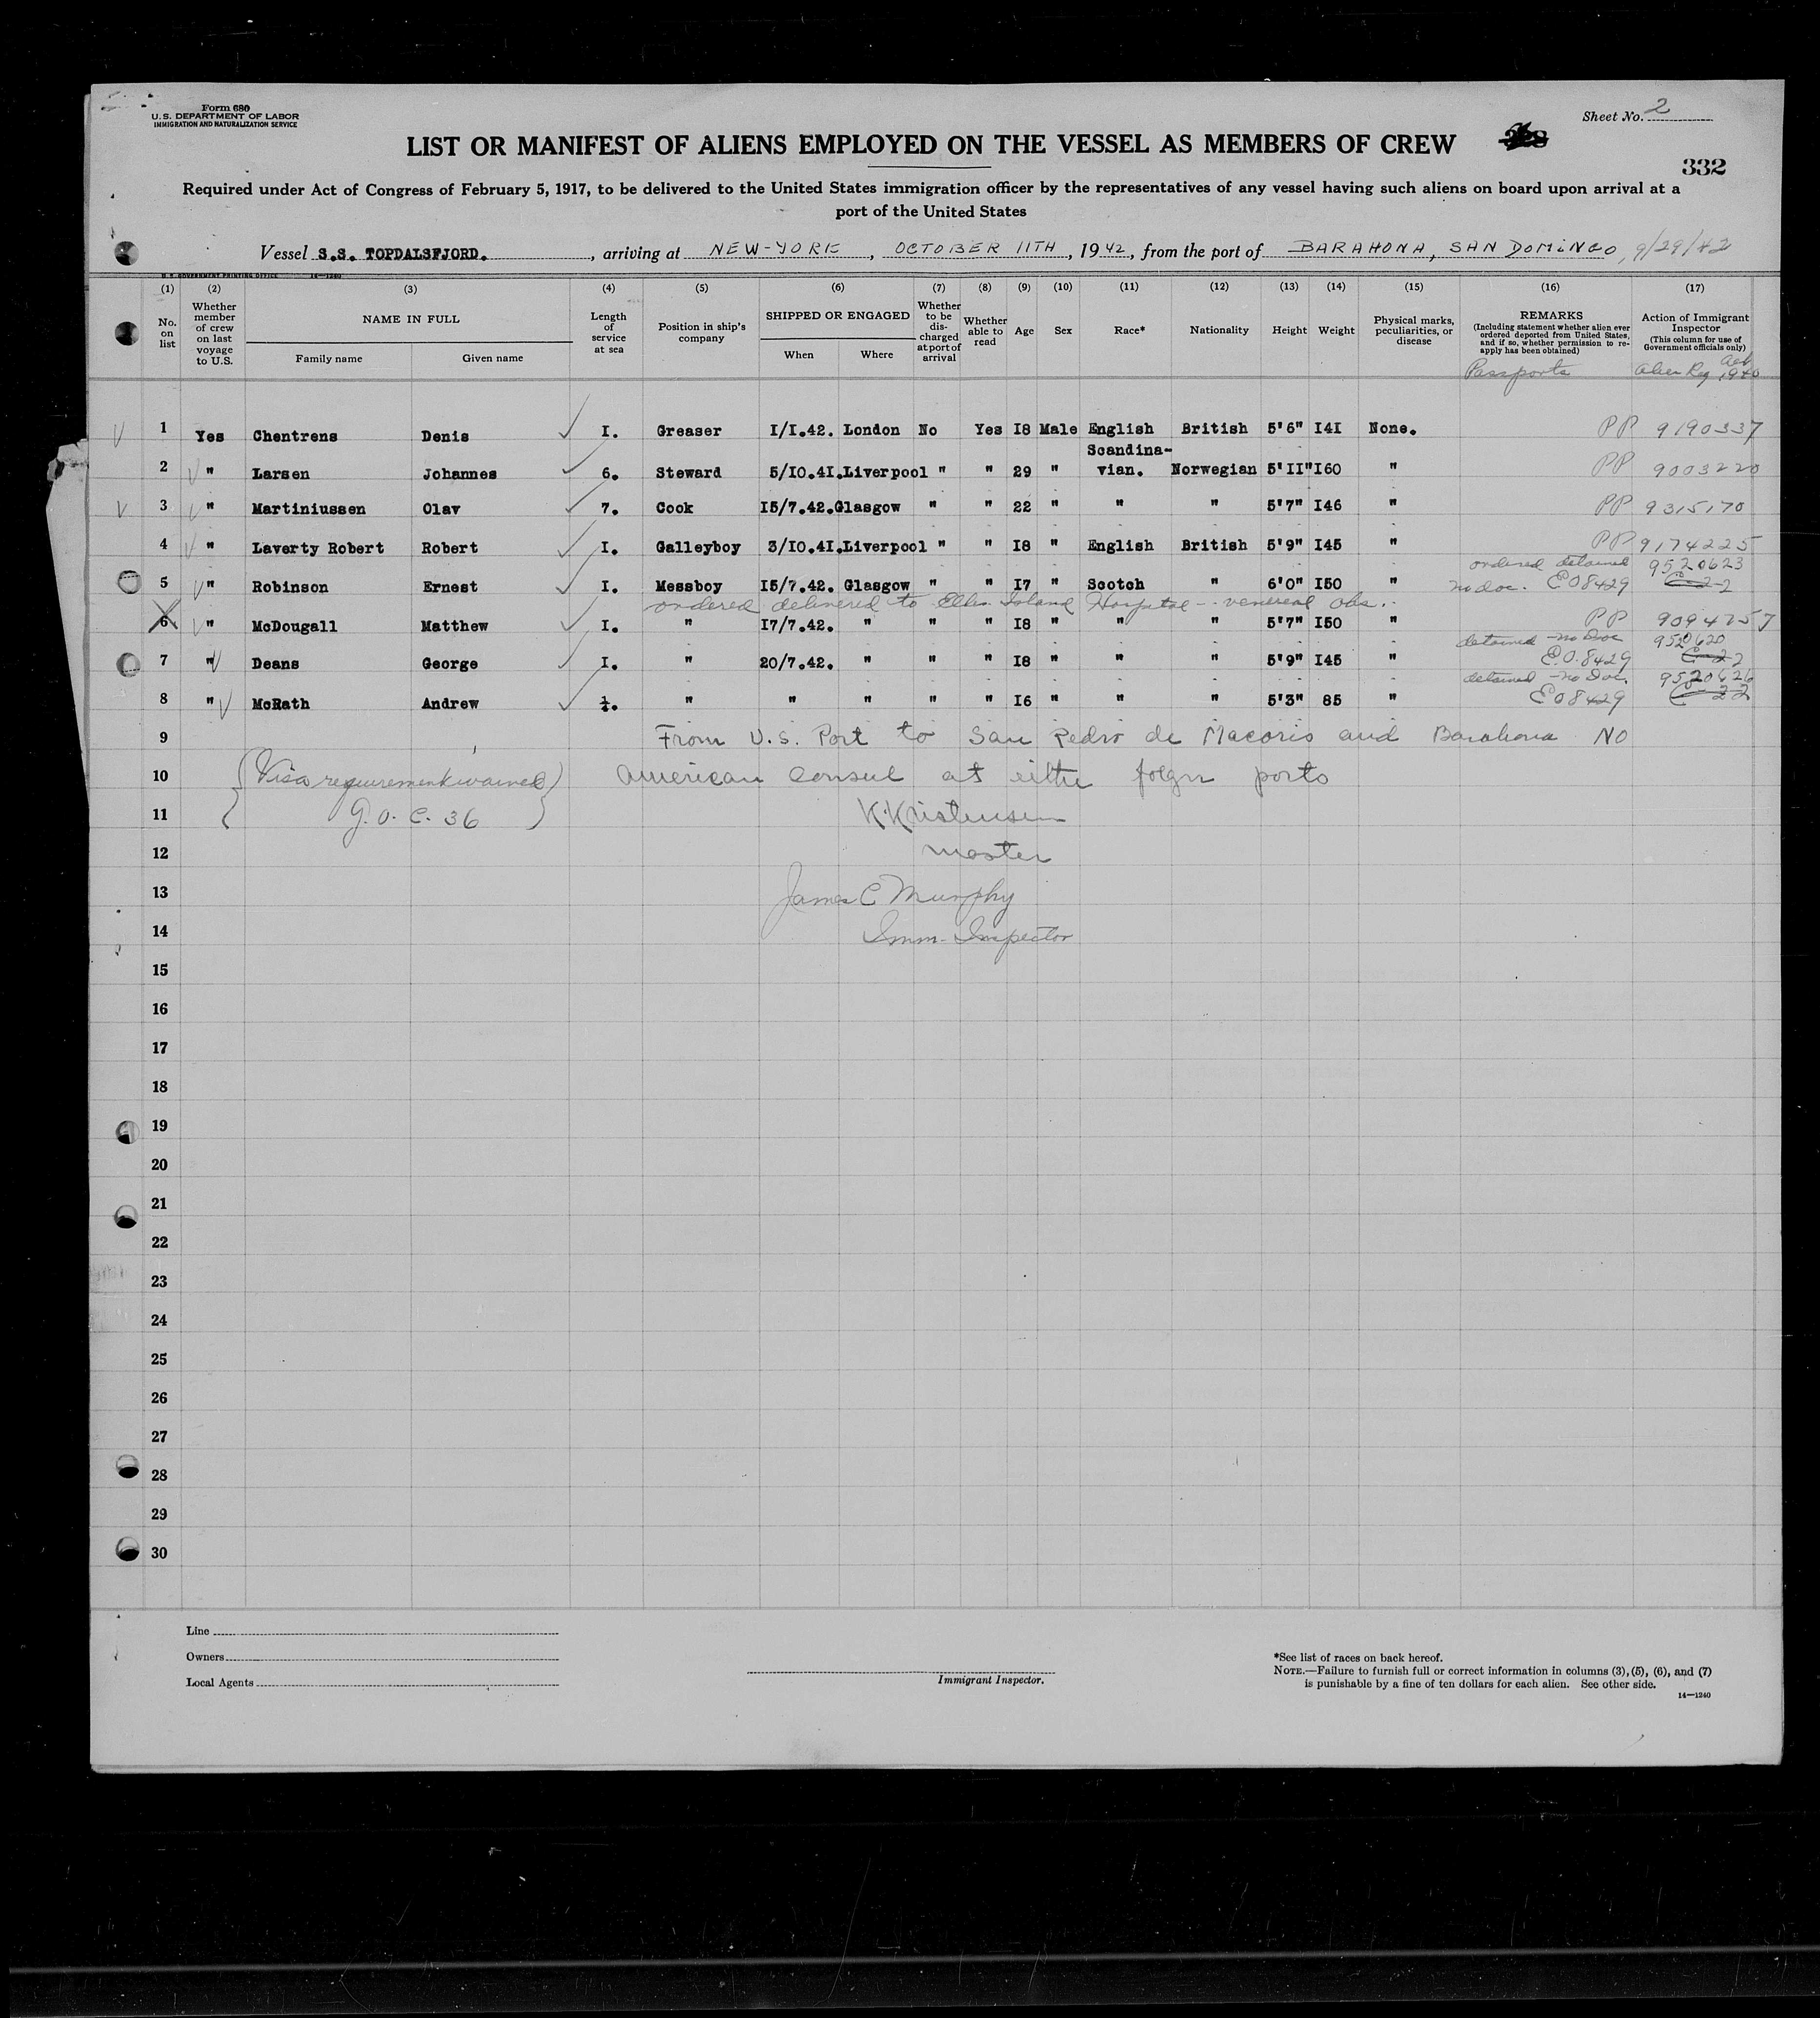 Form 680
U. S. DEPARTMENT OF LABOR
IMMIGRATION AND NATURALIZATION SERVICE
Sheet No. 2
LIST OR MANIFEST OF ALIENS EMPLOYED ON THE VESSEL AS MEMBERS OF CREW
332
Required under Act of Congress of February 5, 1917, to be delivered to the United States immigration officer by the representatives of any vessel having such aliens on board upon arrival at a
port of the United States
Vessel S.S. TOPDALSFJORD. , arriving at NEW-YORK , OCTOBER 11TH , 1942, from the port of BARAHONA, SAN DOMINGO, 9/29/42
U. S. GOVERNMENT PRINTING OFFICE 14—1240
(1) (2) (3) (4) (5) (6) (7) (8) (9) (10) (11) (12) (13) (14) (15) (16) (17)
No. on list
Whether member of crew on last voyage to U.S.
NAME IN FULL
Family name Given name
Length of service at sea
Position in ship's company
SHIPPED OR ENGAGED
When Where
Whether to be discharged at port of arrival
Whether able to read
Age
Sex
Race*
Nationality
Height
Weight
Physical marks, peculiarities, or disease
REMARKS
(Including statement whether alien ever ordered deported from United States, and if so, whether permission to reapply has been obtained)
Passports
Action of Immigrant Inspector
(This column for use of Government officials only)
Alien Reg Act 1940
1 Yes Chentrens Denis I. Greaser I/I.42. London No Yes I8 Male English British 5'6" I4I None. PP 9190337
2 " Larsen Johannes 6. Steward 5/I0.4I. Liverpool " " 29 " Scandina-vian. Norwegian 5'II" I60 " PP 9003220
3 " Martiniussen Olav 7. Cook I5/7.42. Glasgow " " 22 " " " 5'7" I46 " PP 9315170
4 " Laverty Robert Robert I. Galleyboy 3/I0.4I. Liverpool " " I8 " English British 5'9" I45 " PP 9174225
ordered detained 9520623
5 " Robinson Ernest I. Messboy I5/7.42. Glasgow " " I7 " Scotch " 6'0" I50 " no doc. EO 8429 C-2-2
ordered delivered to Ellis Island Hospital -- venereal obs.
6 " McDougall Matthew I. " I7/7.42. " " " I8 " " " 5'7" I50 " PP
detained - no Doc 9520620
7 " Deans George I. " 20/7.42. " " " I8 " " " 5'9" I45 " E.O. 8429 C-22
detained - no Doc. 9520626
8 " McRath Andrew ¼. " " " " " I6 " " " 5'3" 85 " EO 8429 C-22
9 From U.S. Port to San Pedro de Macoris and Barahona NO
10 (Visa requirement waived) American Consul at either forgn ports
11 G.O. C. 36 K. Kristensen
12 master
13 James C Murphy
14 Imm. Inspector
15
16
17
18
19
20
21
22
23
24
25
26
27
28
29
30
Line
Owners
Local Agents
Immigrant Inspector.
*See list of races on back hereof.
NOTE.—Failure to furnish full or correct information in columns (3), (5), (6), and (7)
is punishable by a fine of ten dollars for each alien. See other side.
14—1240